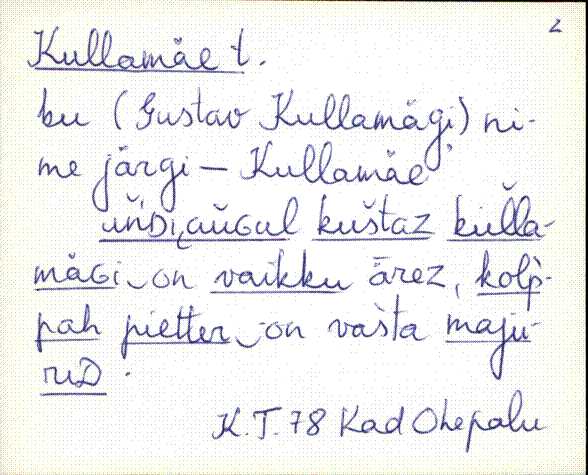 2
Kullamäe t.
ku (Gustav Kullamägi) ni-
me järgi – Kullamäe
kuštaz kùlla-
mäGi‿on vaikku ärez, kolp̀-
pah pietter‿on vašta maju-
ruD.
K.T.78 Kad Ohepalu